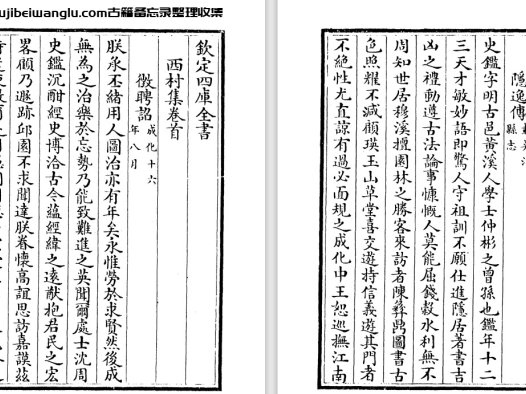 ujibeiwanglu.com古籍备忘录整理收集
欽定四庫全書
西村集卷首
徵聘詔 成化十六年八月
朕承丕緒用人圖治亦有年矣永惟勞於求賢然後成
無為之治樂於忘勢乃能致難進之英聞爾處士沈周
史鑑沉酣經史博洽古今蘊經緯之遠猷抱君民之宏
畧顧乃遯跡邱園不求聞達朕眷懷高誼思訪嘉謨茲
隱逸傳 縣志
史鑑字明古邑黃溪人學士仲彬之曾孫也鑑年十二
三天才敏妙語即驚人守祖訓不願仕進隱居著書吉
凶之禮動遵古法論事慷慨人莫能屈錢穀水利無不
周知世居穆溪擅園林之勝客來訪者陳彝鼎圖書古
色照耀不減顧瑛玉山草堂喜交遊持信義遊其門者
不絶性尤直諒有過必面規之成化中王恕巡撫江南